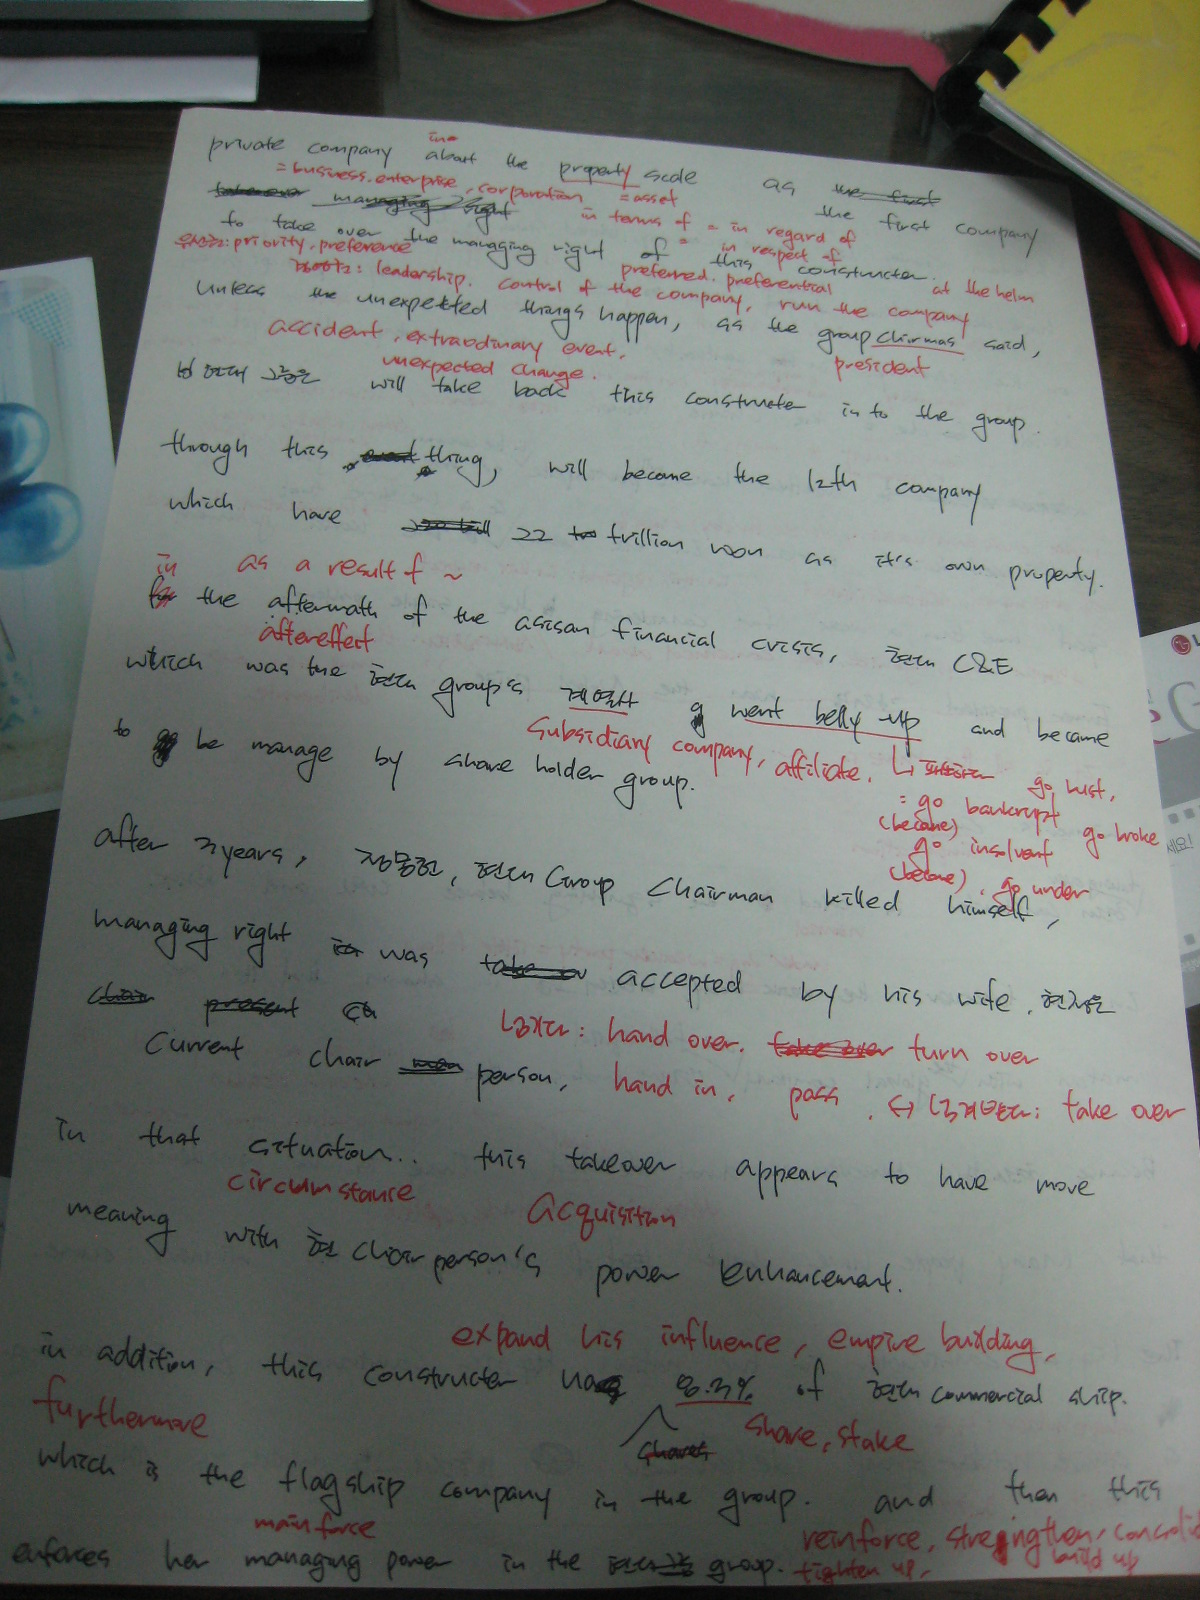 in
private company about the property scale as the first
= business. enterprise, corporation = asset
managing right
in terms of = in regard of
the first company
to take over the managing right of this constructer.
= in respect of
우선권: priority, preference
preferred. preferential
at the helm
경영권: leadership. control of the company, run the company
unless the unexpected things happen, as the group chirmas said,
accident, extraodinary event,
unexpected change.
president
현대 그룹은 will take back this constructer in to the group.
through this thing, will become the 12th company
which have 22 trillion woon as it's own property.
in as a result of ~
the aftermath of the asisan financial crisis, 현대 C&E
aftereffect
which was the 현대 group's 계열사 went belly up and became
Subsidiary company, affiliate.
to be manage by share holder group.
go bust,
= go bankrupt
(became)
go broke
go insolvent
(became), go under
after 3 years, 정몽헌, 현대 Group Chairman killed himself,
managing right was accepted by his wife, 현정은
넘기다: hand over. take over turn over
Current chair person,
hand in, pass. ↔ 넘겨받다: take over
in that situation.. this takeover appears to have move
circumstance
acquisition
meaning with 현 chair person's power enhancement.
expand his influence, empire building,
in addition, this constructer has 8.3% of 현대 commercial ship.
furthermore
shares
share, stake
which is the flagship company in the group. and then this
main force
reinforce, strengthen,
enforces her managing power in the 현대 group.
tighten up,
build up